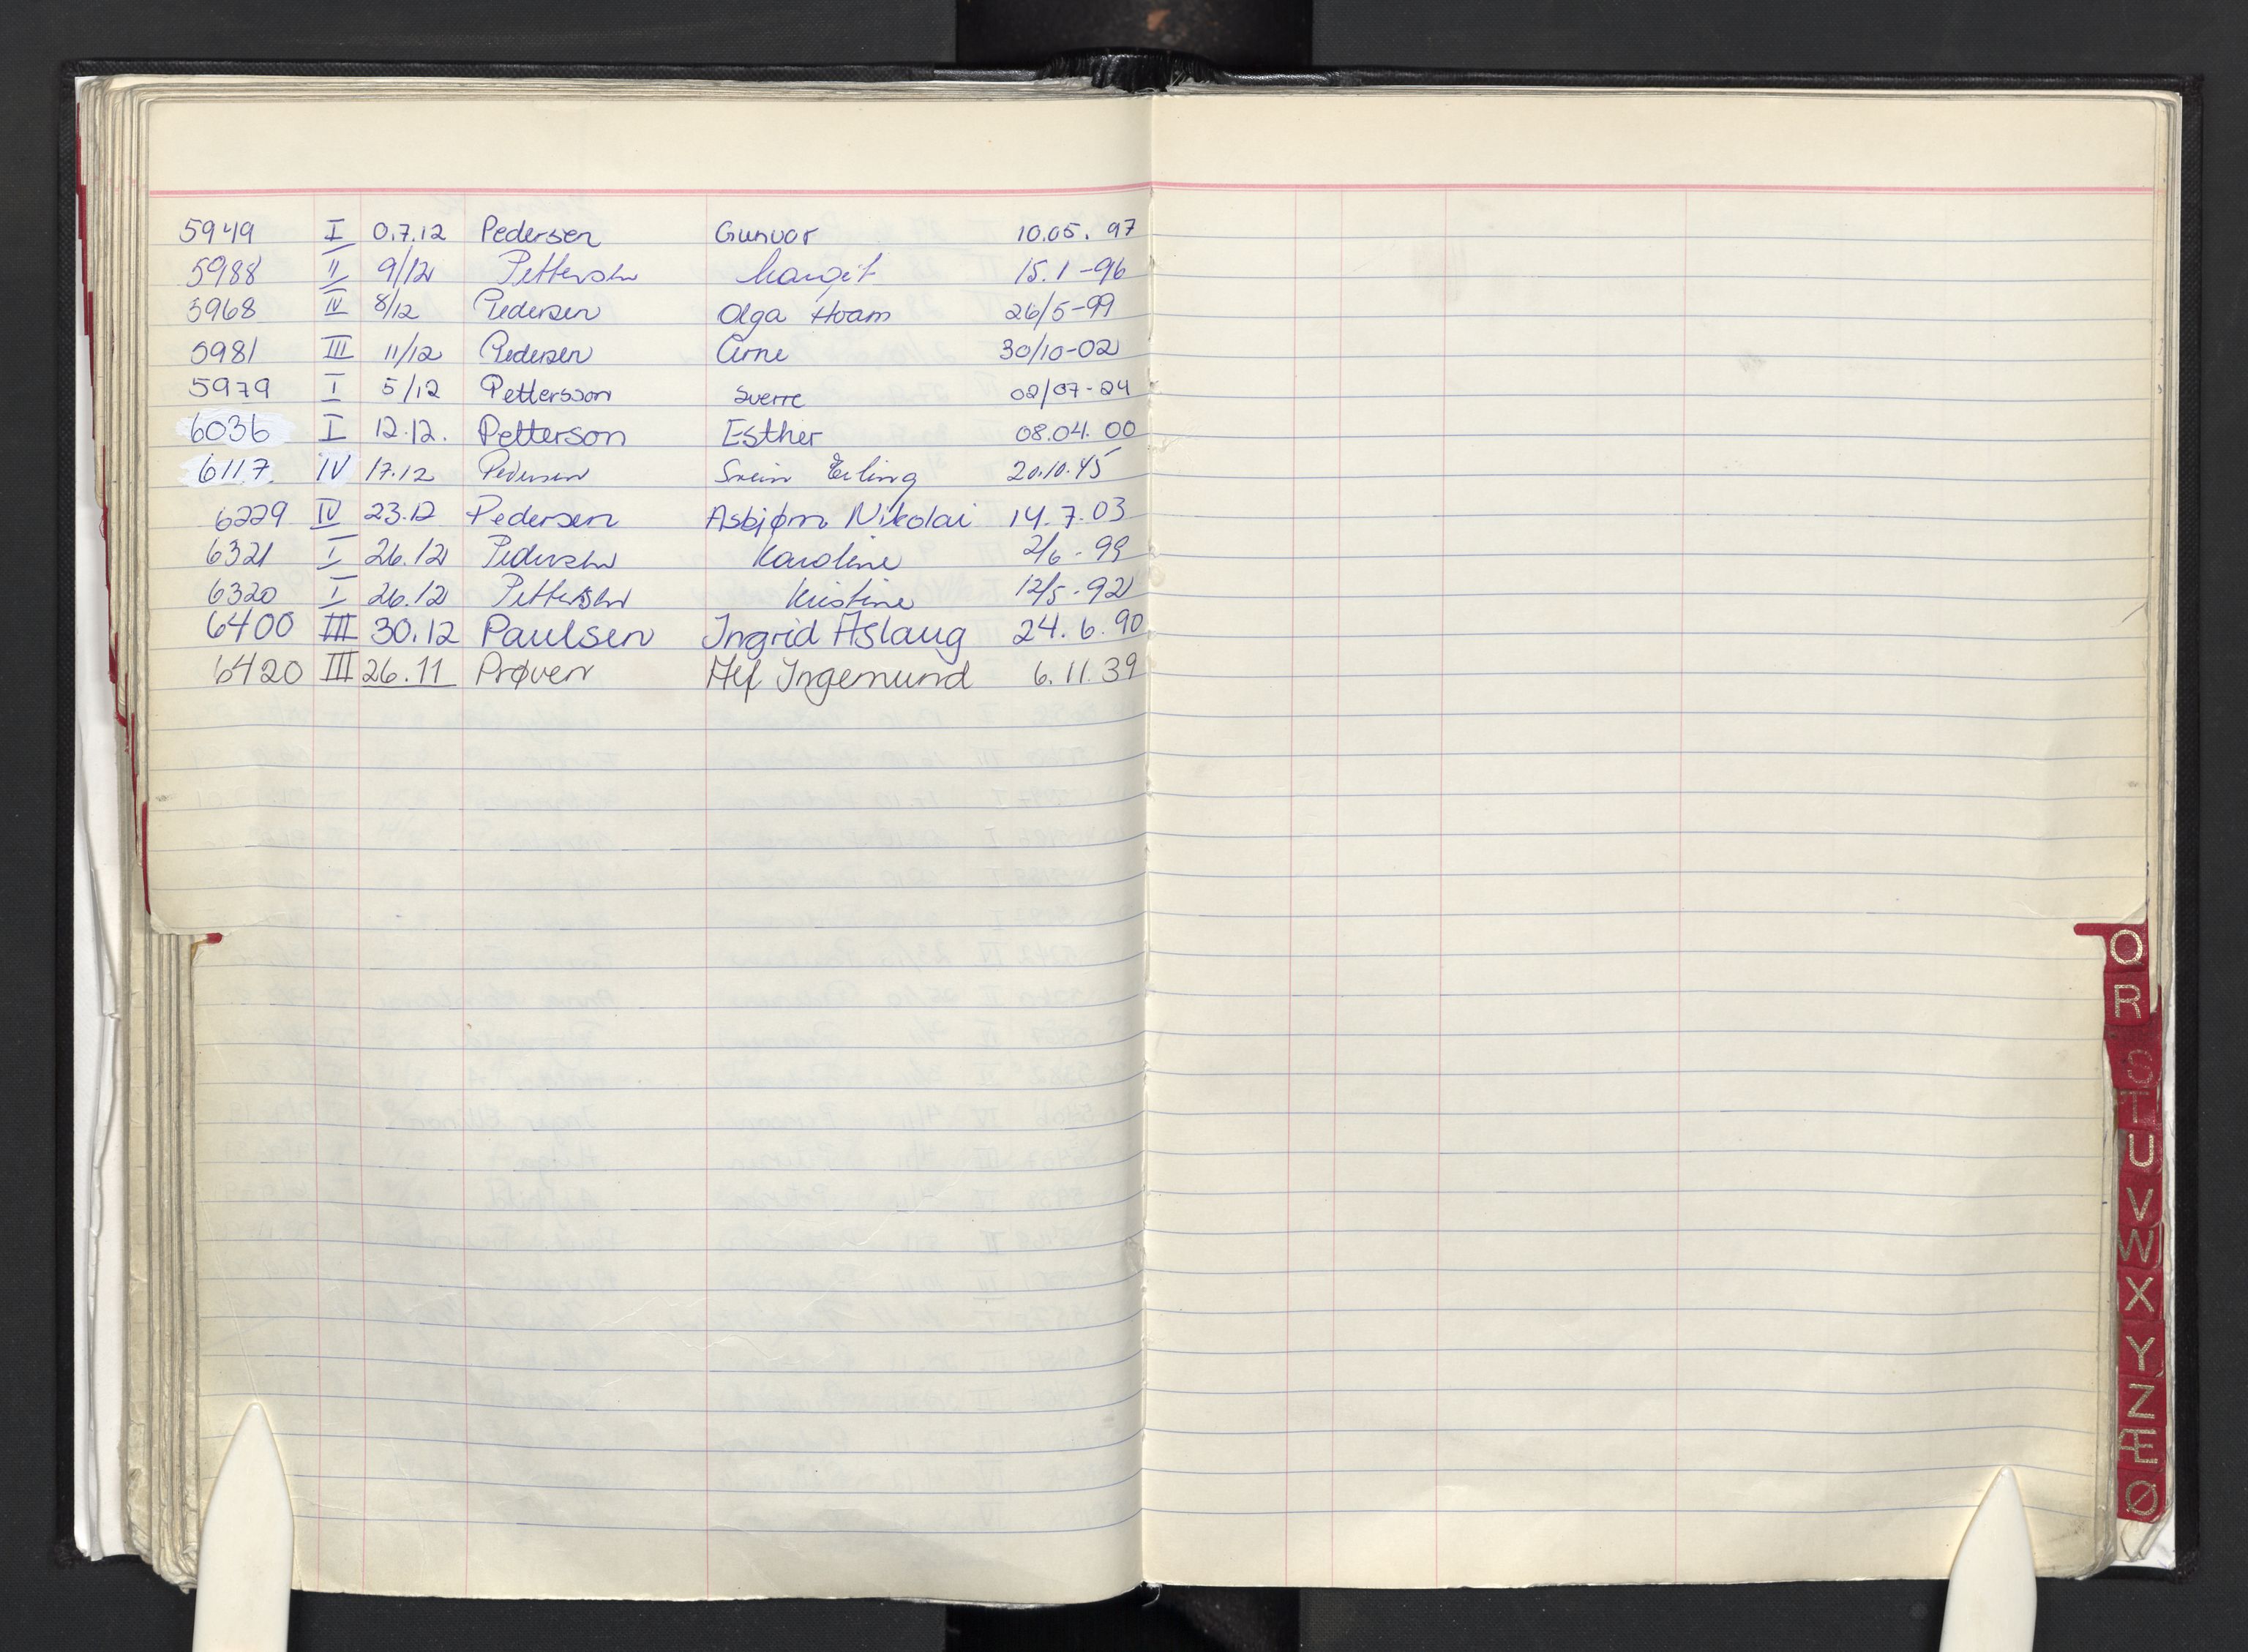 5949 I 0.7.12 Pedersen Gunvor 10.05. 97
5988 II 9/12 Pettersen Margit 15.1-96
5968 IV 8/12 Pedersen Olga Hvam 26/5-99
5981 III 11/12 Pedersen Arne 30/10-02
5979 I 5/12 Pettersson Sverre 02/07-24
6036 I 12.12. Petterson Esther 08.04. 00
6117 IV 17.12 Pedersen Svein Erling 20.10.45
6229 IV 23.12 Pedersen Asbjørn Nikolai 14.7.03
6321 I 26.12 Pedersen Karoline 2/6-99
6320 I 26.12 Pettersen Kristine 12/5-92
6400 III 30.12 Paulsen Ingrid Aslaug 24.6.90
6420 III 26.11 Prøven Alf Ingemund 6.11.39
Q
R
S
T
U
V
W
X
Y
Z
Æ
Ø